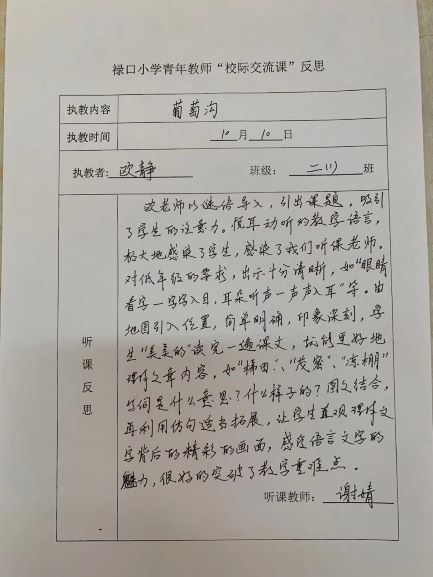 禄口小学青年教师“校际交流课”反思
执教内容 葡萄沟
执教时间 10 月 10 日
执教者: 欧静 班级: 二(1) 班
听课反思
欧老师以谜语导入，引出课题，吸引
了学生的注意力。悦耳动听的教学语言，
极大地感染了学生，感染了我们听课老师。
对低年级的要求，出示十分清晰，如“眼睛
看字一字字入目，耳朵听声一声声入耳”等。由
地图引入位置，简单明确，印象深刻，学
生“美美的”读完一遍课文，就能更好地
理解文章内容，如“梯田”、“茂密”、“凉棚”
等词是什么意思？什么样子的？图文结合，
再利用仿句适当拓展，让学生直观理解文
字背后的精彩的画面，感受语言文字的
魅力，很好的突破了教学重难点。
听课教师: 谢婧